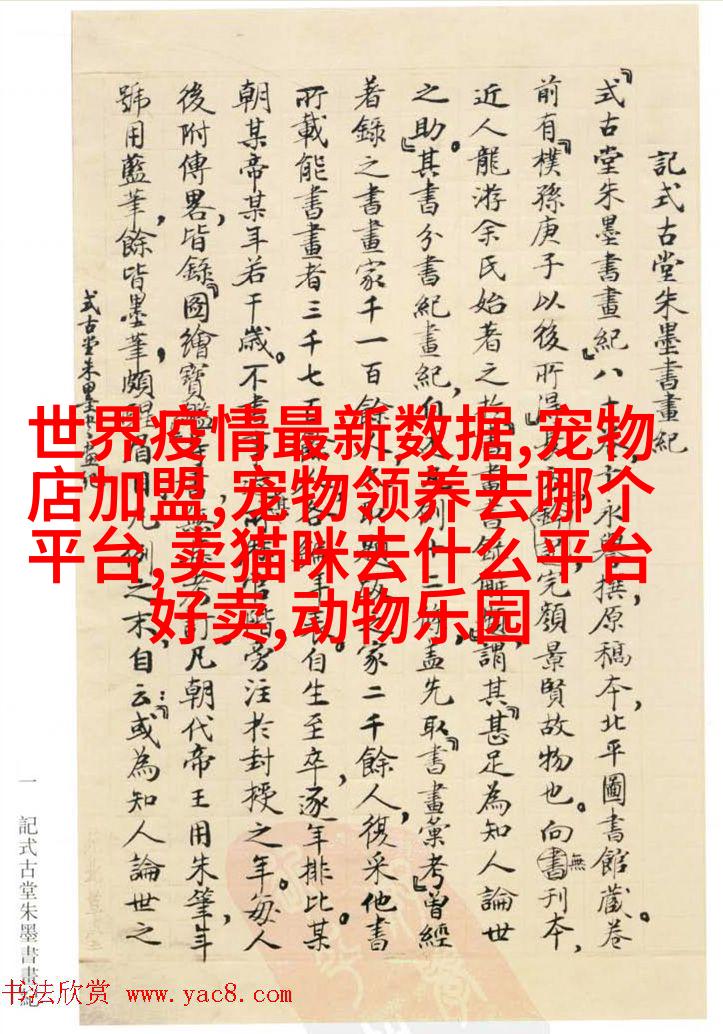 記式古堂朱墨書畫紀
『式古堂朱墨書畫紀』八十 永譽撰原稿本，北平圖書館藏。卷
前有『樸孫庚子以後所得 完顏景賢故物也。向無刊本，
近人龍游余氏始著之於『書畫書錄解題』，謂其『甚足為知人論世
之助』。其書分書紀畫紀， 例十二條，蓋先取『書畫彙考』曾經
著錄之書畫家千一百餘人， 家二千餘人，復采他書
所載能書畫者三千七百餘人，各編年表。自生至卒，逐年排比某
朝某帝某年若干歲。不書 官階旁注於封授之年。每人
後附傳畧，皆錄『圖繪寶鑑 凡朝代帝王用朱筆，年
號用藍筆，餘皆墨筆，頗醒眉目。凡例之末，自云：『或為知人論世之
式古堂朱墨書畫紀
一 記式古堂朱墨書畫紀
世界疫情最新数据,宠物
店加盟,宠物领养去哪个
平台,卖猫咪去什么平台
好卖,动物乐园
书法欣赏 www.yac8.com